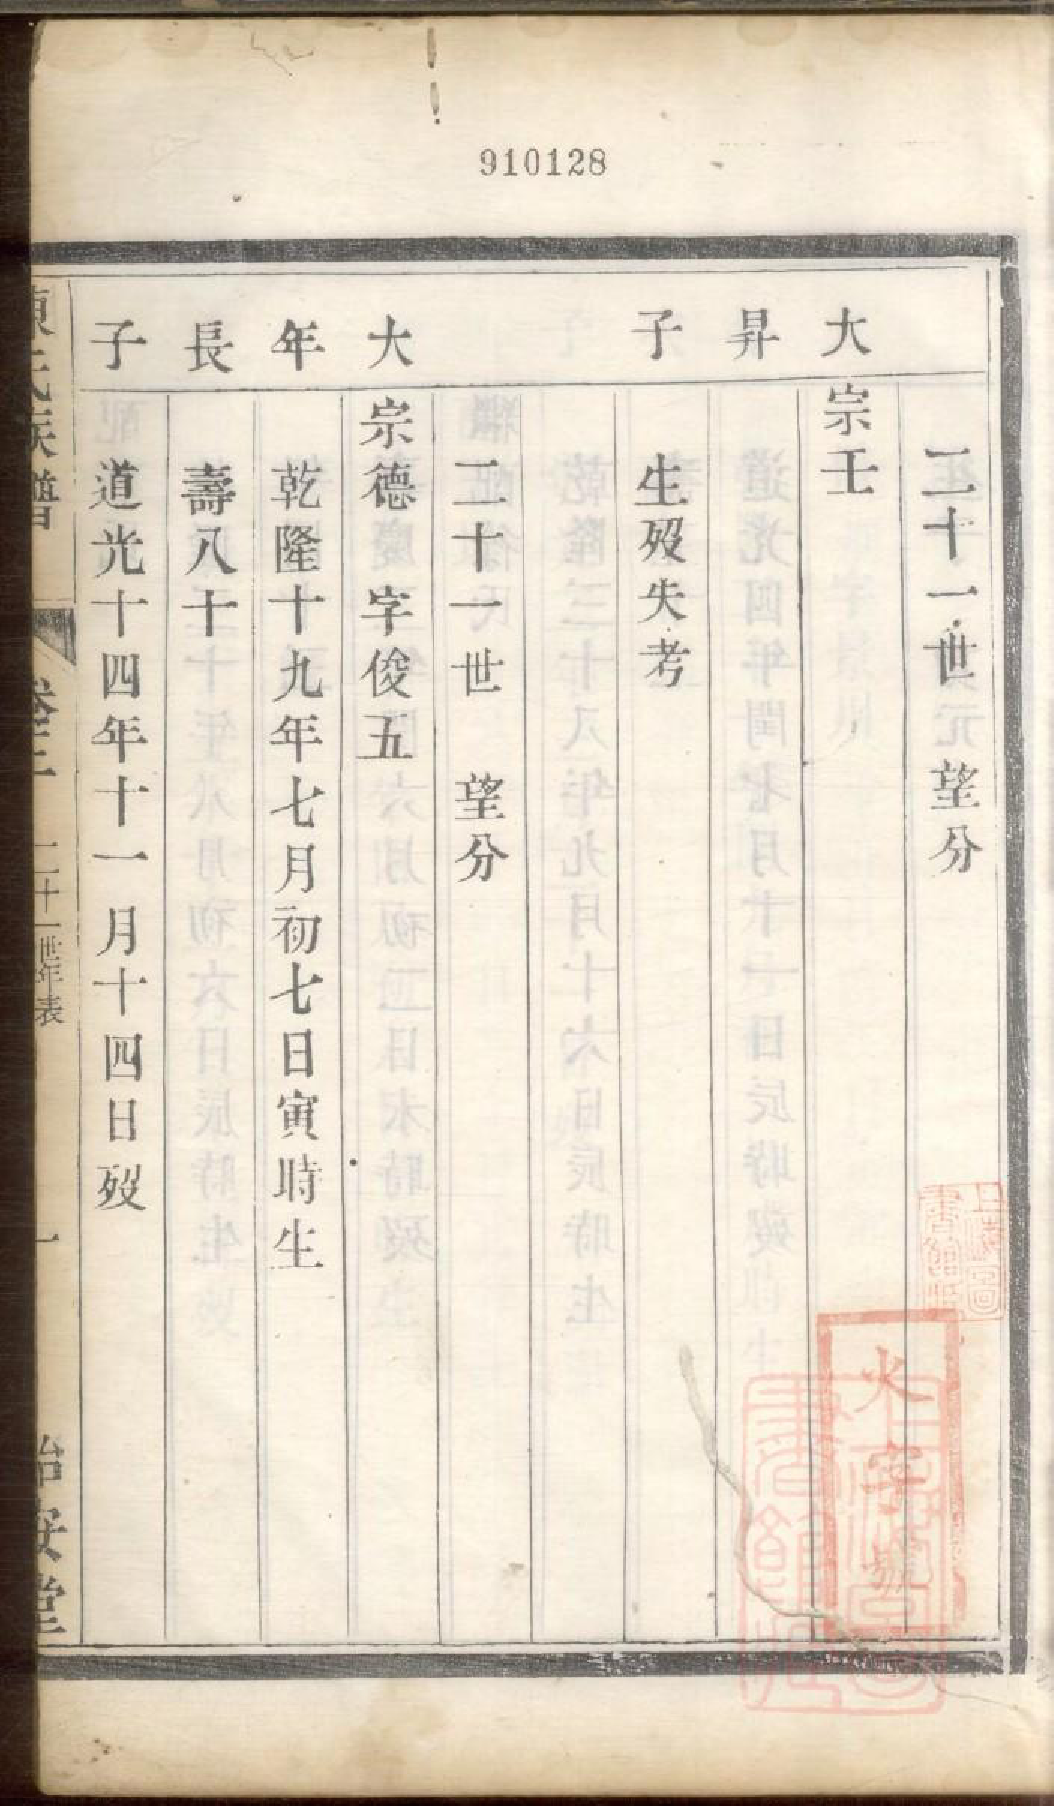 910128
二十一世 望分
大 宗壬
昇
子 生歿失考
二十一世 望分
大 宗德 字俊五
年 乾隆十九年七月初七日寅時生
長 壽八十
子 道光十四年十一月十四日歿
陳氏族譜 卷三 二十一世年表 一 治安堂
上海圖書館藏
火字號